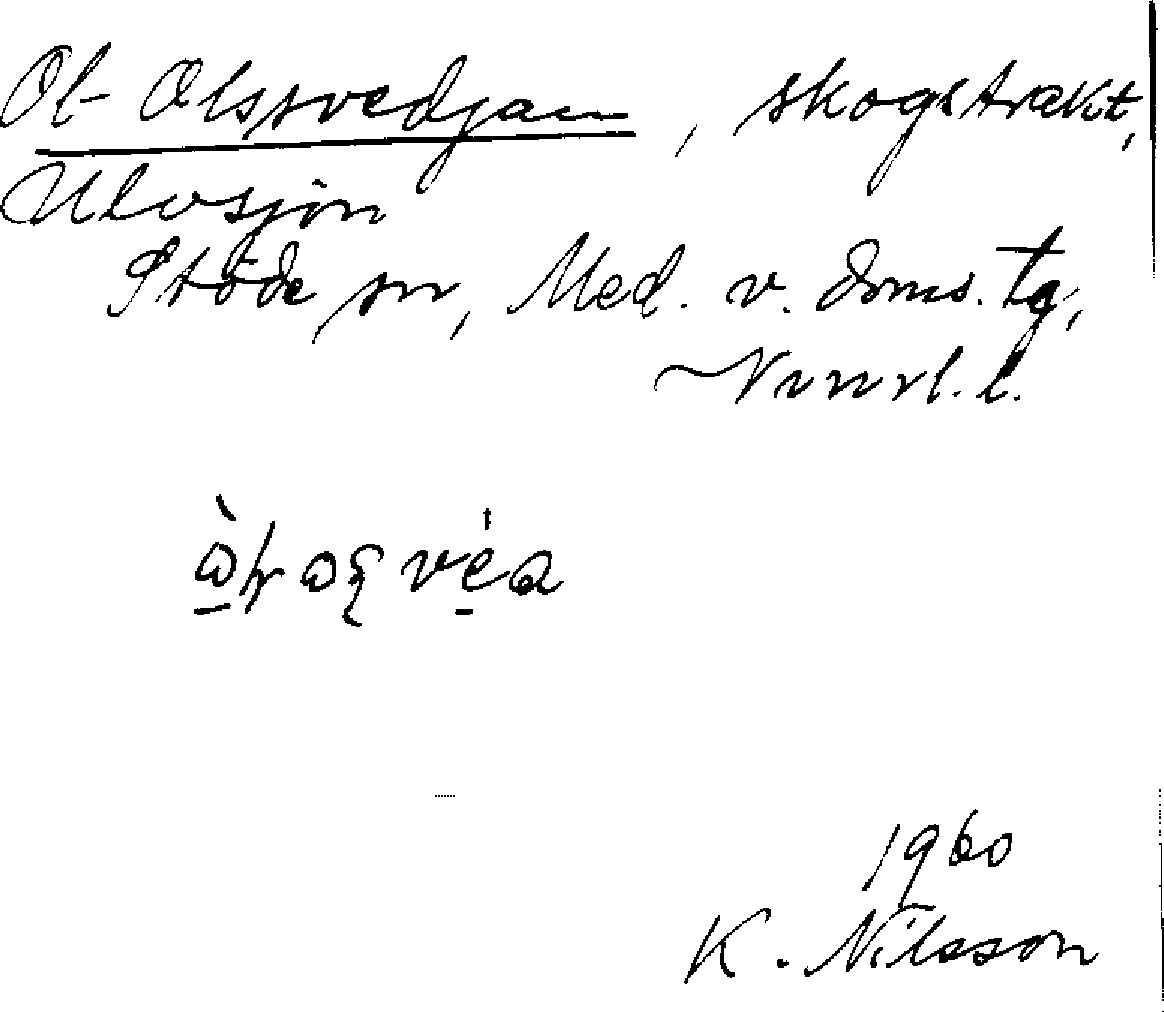 Ol-Olssvedjan, skogstrakt,
Ulvsjön
Stöde sn, Med. v. doms. tg,
Vnrl. l.
1960
K. Nilsson